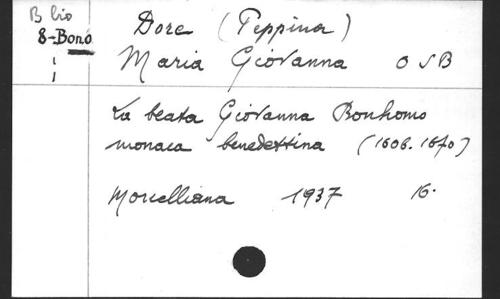 B bio
8-Bono
Dore (Peppina)
Maria Giovanna OSB
La beata Giovanna Bonhomo
monaca benedettina (1606.1670)
Morcelliana 1937 16.